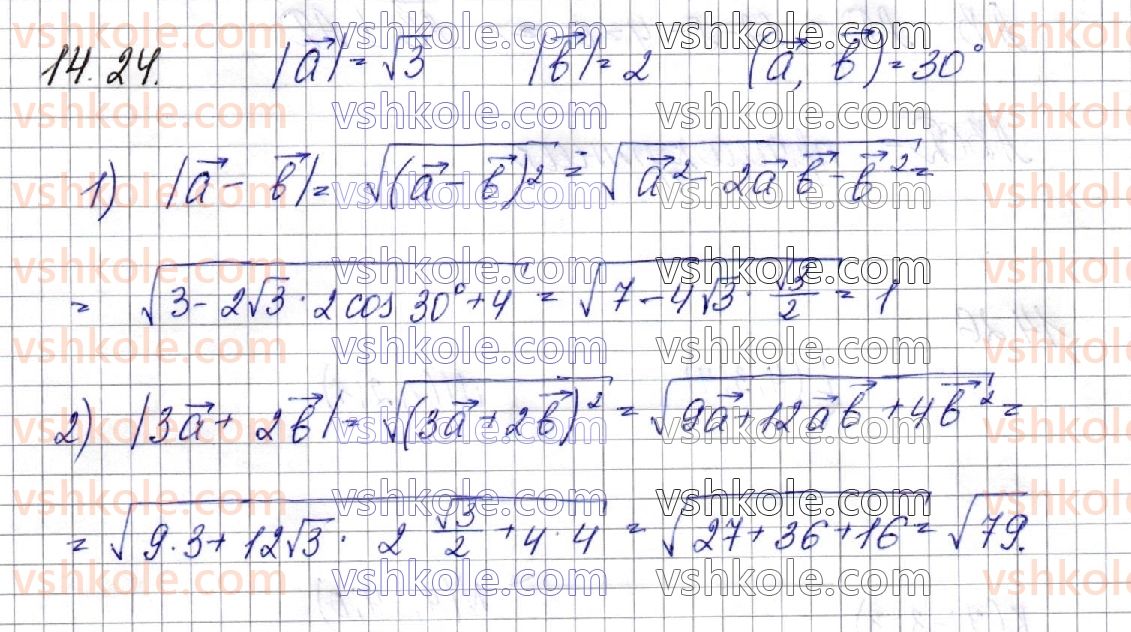 14.24. |a⃗| = √3 |b⃗| = 2 (a⃗, b⃗) = 30°
1) |a⃗ - b⃗| = √((a⃗ - b⃗)²) = √(a⃗² - 2a⃗ b⃗ - b⃗²) =
= √(3 - 2√3 · 2 cos 30° + 4) = √(7 - 4√3 · √3/2) = 1
2) |3a⃗ + 2b⃗| = √((3a⃗ + 2b⃗)²) = √(9a⃗ + 12a⃗b⃗ + 4b⃗²) =
= √(9·3 + 12√3 · 2 √3/2 + 4·4) = √(27 + 36 + 16) = √79.
vshkole.com